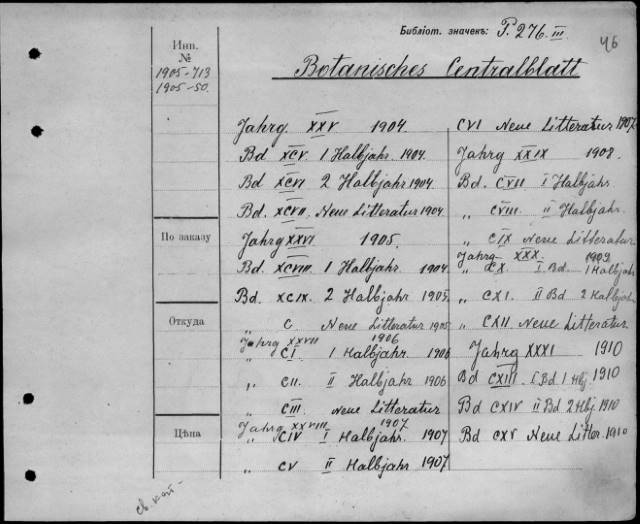 Библіот. значекъ: P. 276 III
46
Инв.
№
1905-713
1905-50.
По заказу
Откуда
Цѣна
Botanisches Centralblatt
Jahrg. XXV 1904.
Bd XCV 1 Halbjahr. 1904.
Bd XCVI 2 Halbjahr 1904
Bd. XCVII. Neue Litteratur 1904.
Jahrg XXVI 1905.
Bd. XCVIII 1 Halbjahr 1904
Bd. XCIX. 2 Halbjahr 1905
„ C Neue Litteratur 1905
Jahrg XXVII 1906
„ CI 1 Halbjahr. 1906
„ CII II Halbjahr 1906
„ CIII Neue Litteratur
Jahrg XXVIII 1907
„ CIV I Halbjahr. 1907
„ CV II Halbjahr 1907
CVI Neue Litteratur 1907
Jahrg XXIX 1908.
Bd. CVII I Halbjahr.
„ CVIII. II Halbjahr.
„ CIX Neue Litteratur
Jahrg XXX. 1909
„ CX. I Bd. 1 Halbjahr
„ CXI. II Bd 2 Halbjahr
„ CXII Neue Litteratur
Jahrg XXXI 1910
Bd CXIII I Bd 1 Hbj. 1910
Bd CXIV II Bd 2 Hbj. 1910
Bd CXV Neue Litter. 1910
св. кат-